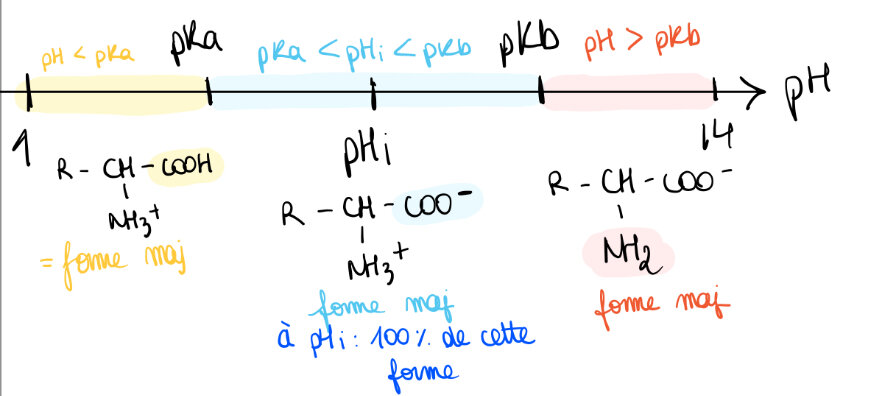 pH < pKa
pKa
pKa < pHi < pKb
pKb
pH > pKb
pH
1
pHi
14
R - CH - COOH
NH3+
= forme maj
R - CH - COO-
NH3+
forme maj
à pHi : 100% de cette
forme
R - CH - COO-
NH2
forme maj